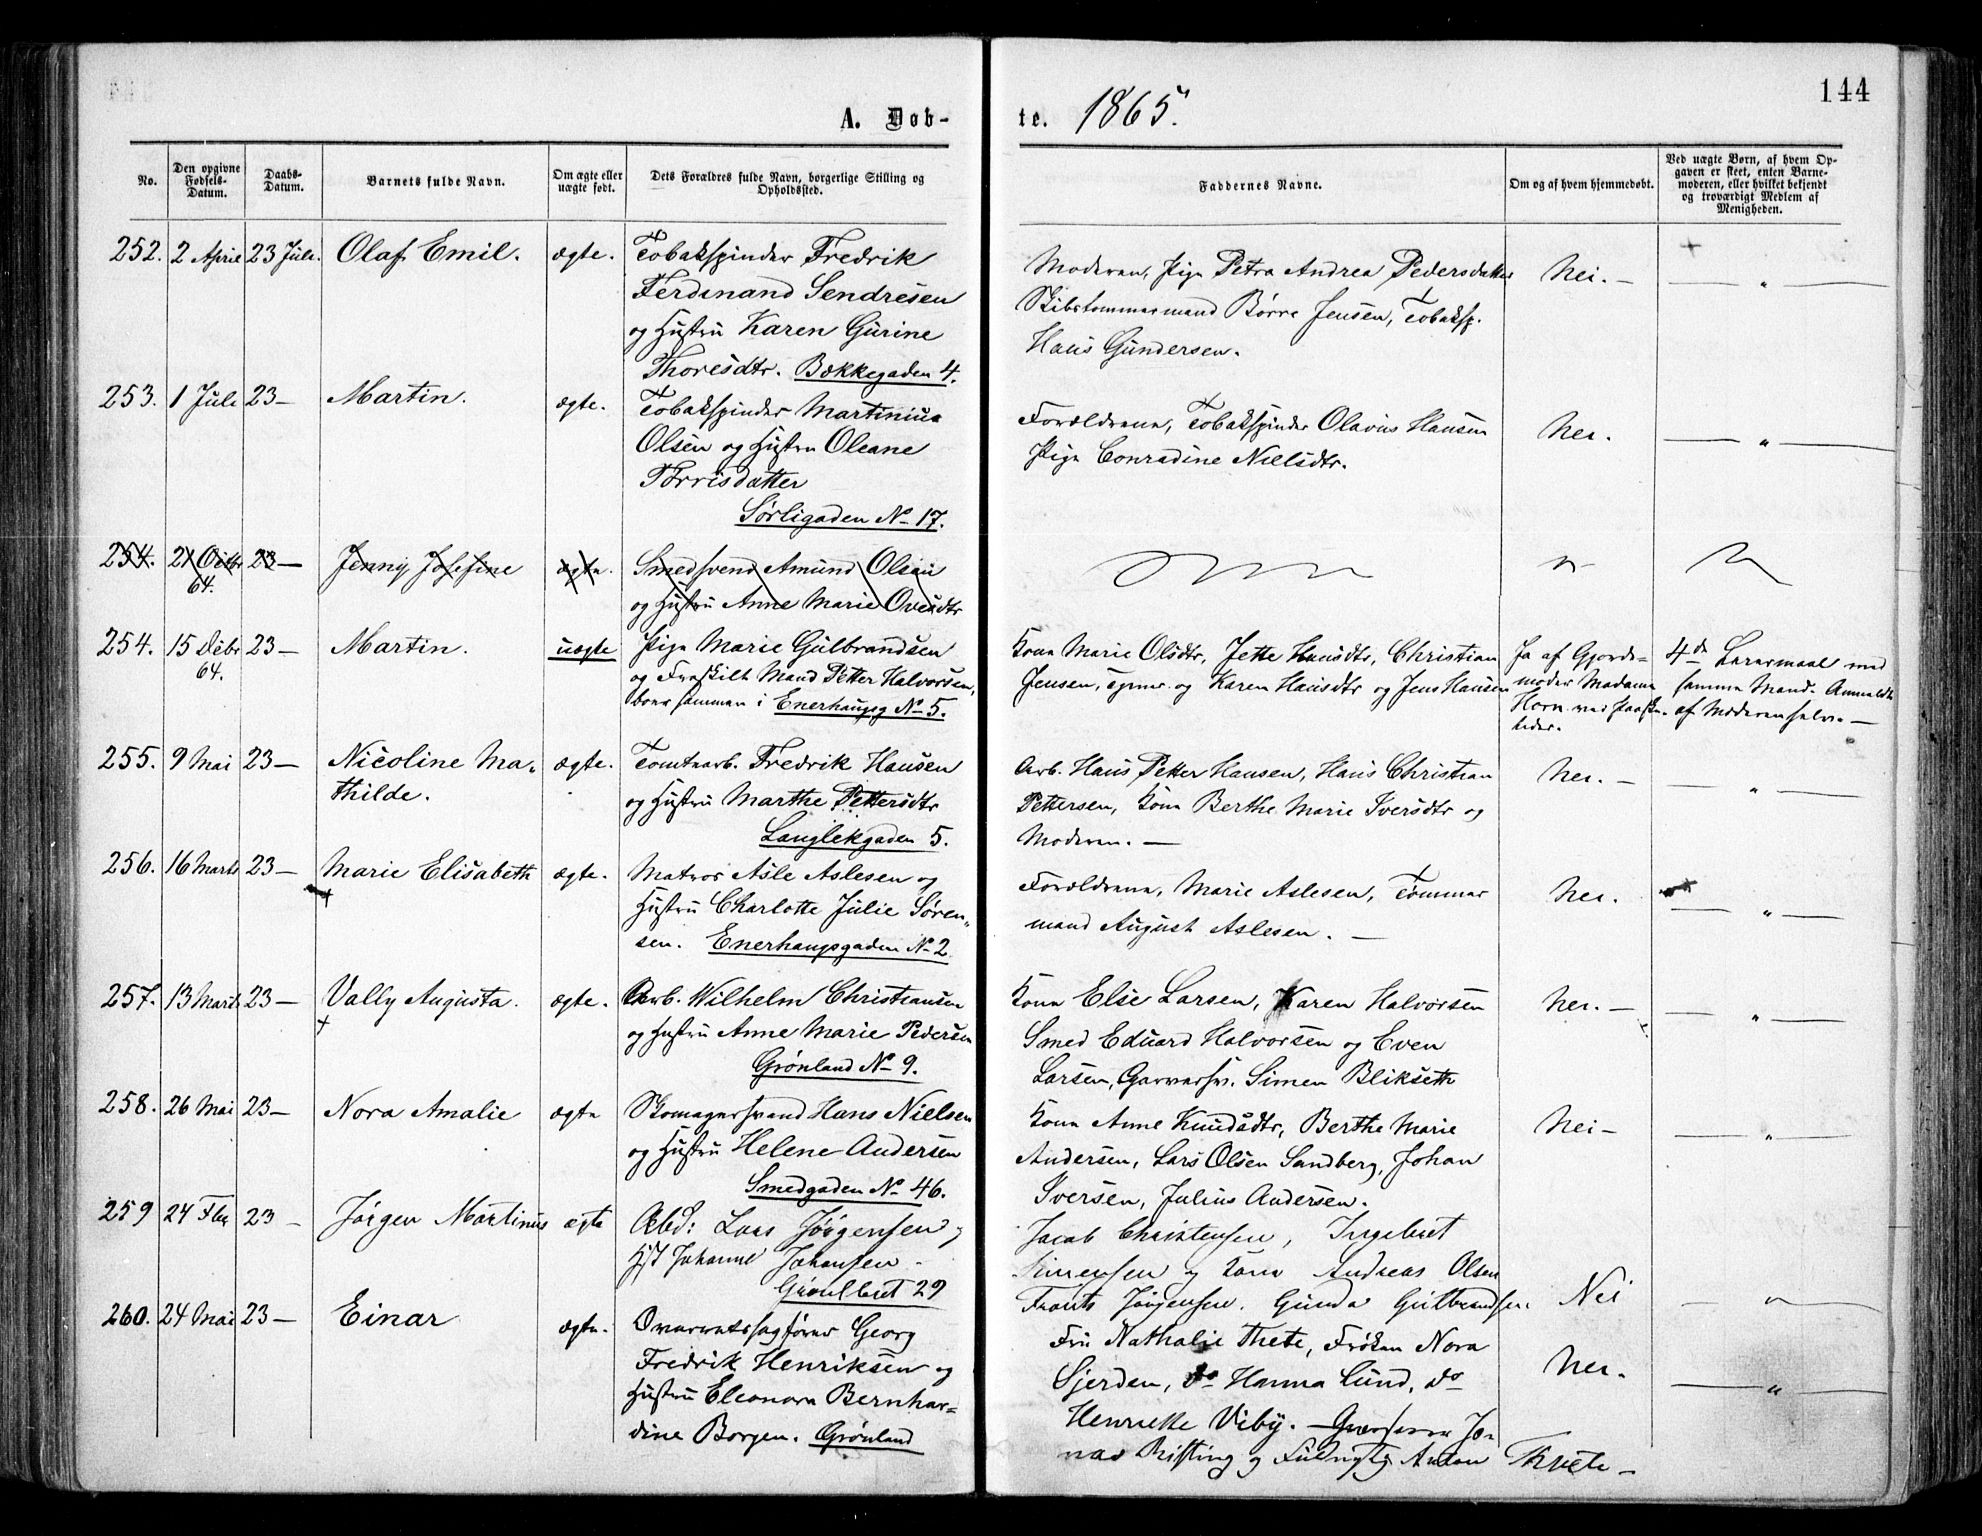 144
A. Døb-
te. 1865.
No.
Den opgivne Fødsels-Datum.
Daabs-Datum.
Barnets fulde Navn.
Om ægte eller uægte født.
Dets Forældres fulde Navn, borgerlige Stilling og Opholdssted.
Faddernes Navne.
Om og af hvem hjemmedøbt.
Ved uægte Børn, af hvem Op-
gaven er skeet, enten Barne-
moderen, eller hvilket bekjendt
og troværdigt Medlem af
Menigheden.
252. 2 April 23 Juli. Olaf Emil. ægte. Tobakspinder Fredrik
Ferdinand Sendresen
og Hustru Karen Gurine
Thoresdtr. Bækkegaden 4.
Moderen, Pige Petra Andrea Pedersdatter
Skibstømmermand Børre Jensen, Tobaksp.
Hans Gundersen.
Nei. — — „ —
253. 1 Juli 23 — Martin. ægte. Tobakspinder Martinius
Olsen og Hustru Oleane
Torrisdatter
Sørligaden No 17.
Forældrene, Tobakspinder Olavus Hansen
Pige Conradine Nielsdtr.
Nei. — „ —
254. 21 Octbr 64. 23 — Jenny Josefine ægte. Smedsvend Amund Olsen
og Hustru Anne Marie Ovesdtr
254. 15 Debr 64. 23 — Martin. uægte Pige Marie Gulbrandsen
og Fraskilt Mand Petter Halvorsen,
boer sammen i Enerhaugsg No 5.
Kone Marie Olsdtr, Jette Hansdtr, Christian
Jensen, og Karen Hansdtr og Jens Hansen
Ja af Gjorde-
moder Madame
Horn ved
4de Leiermaal med
samme Mand. Anmeldt
af Moderen selv. —
255. 9 Mai 23 — Nicoline Ma-
thilde. ægte. Tomtearb. Fredrik Hansen
og Hustru Marthe Pettersdtr
Langlekgaden 5.
Arb. Hans Petter Hansen, Hans Christian
Pettersen, Kone Berthe Marie Iversdtr og
Moderen. —
Nei. — — „ —
256. 16 Marts 23 — Marie Elisabeth ægte. Matros Asle Aslesen og
Hustru Charlotte Julie Søren-
sen. Enerhaugsgaden No 2
Forældrene, Marie Aslesen, Tømmer
mand August Aslesen. —
Nei. — „ —
257. 13 Marts 23 — Vally Augusta. ægte. Arb. Wilhelm Christiansen
og Hustru Anne Marie Pedersen
Grønland No 9.
Kone Else Larsen, Karen Halvorsen
Smed Eduard Halvorsen og Even
Larsen, Garversv. Simen Blikseth
Nei. — — „ —
258. 26 Mai 23 — Nora Amalie ægte Skomagersvend Hans Nielsen
og Hustru Helene Andersen
Smedgaden No 46.
Kone Anne Knudsdtr, Berthe Marie
Andersen, Lars Olsen Sandberg, Johan
Iversen, Julius Andersen.
Nei — — „ —
259 24 Fbr 23 — Jørgen Martinus ægte Arbd: Lars Jørgensen og
Hst Johanne Johansen
Grønlleret 29
Jacob Christensen, Ingebret
Simensen og Kone Andreas Olsen
Frants Jørgensen. Gunda Gulbrandsen.
Nei — „ —
260. 24 Mai 23 — Einar ægte. Overretssagfører Georg
Fredrik Henriksen og
Hustru Eleonora Bernhar-
dine Borgen. Grønland
Fru Nathalie Thete, Frøken Nora
Sjerden, do Hanna Lund, do
Henriette Viby. — Grosserer Jo-
nas Risting og Fuldmægtig Anton
Nei. — „ —